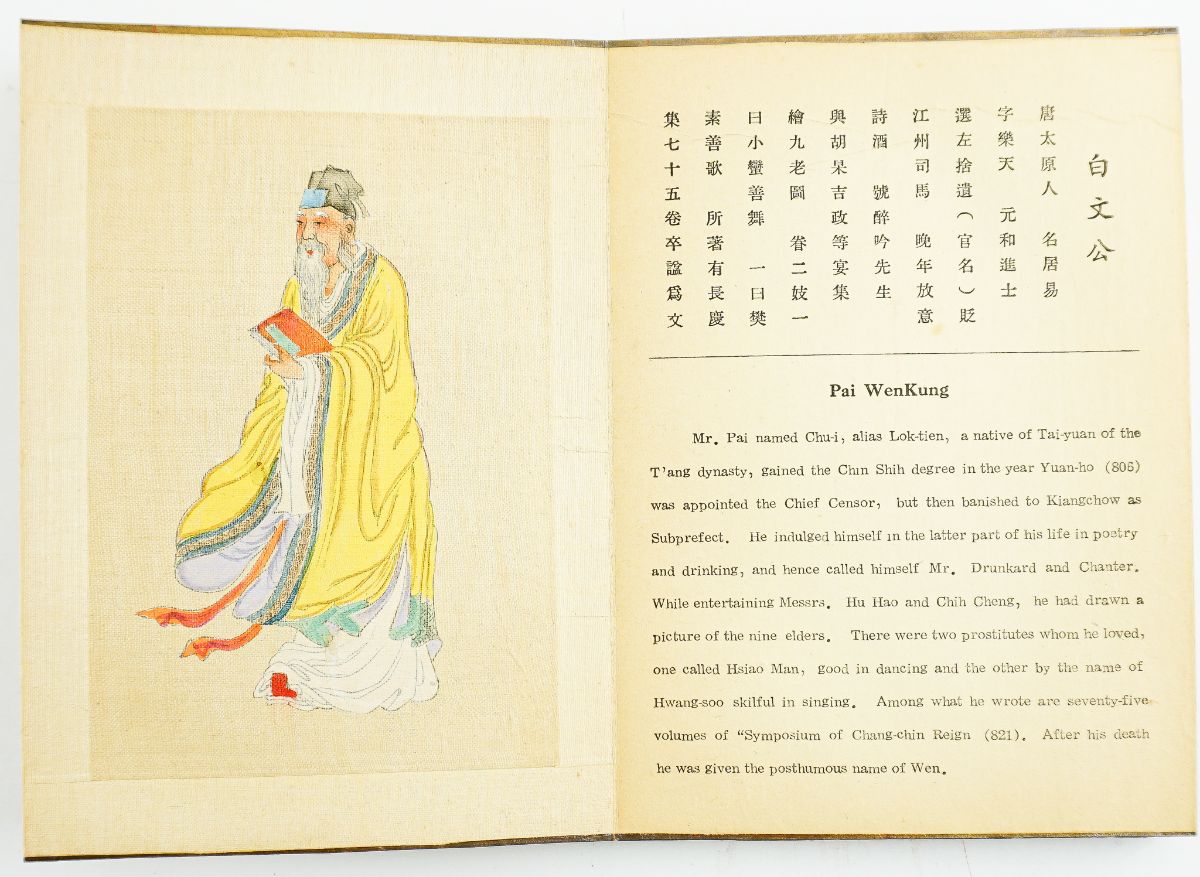 白文公
唐太原人 名居易
字樂天 元和進士
選左捨遺(官名)貶
江州司馬 晚年放意
詩酒 號醉吟先生
與胡杲吉政等宴集
繪九老圖 眷二妓一
曰小蠻善舞 一曰樊
素善歌 所著有長慶
集七十五卷卒諡爲文
Pai WenKung
Mr. Pai named Chu-i, alias Lok-tien, a native of Tai-yuan of the
T'ang dynasty, gained the Chin Shih degree in the year Yuan-ho (806)
was appointed the Chief Censor, but then banished to Kiangchow as
Subprefect. He indulged himself in the latter part of his life in poetry
and drinking, and hence called himself Mr. Drunkard and Chanter.
While entertaining Messrs. Hu Hao and Chih Cheng, he had drawn a
picture of the nine elders. There were two prostitutes whom he loved,
one called Hsiao Man, good in dancing and the other by the name of
Hwang-soo skilful in singing. Among what he wrote are seventy-five
volumes of "Symposium of Chang-chin Reign (821). After his death
he was given the posthumous name of Wen.